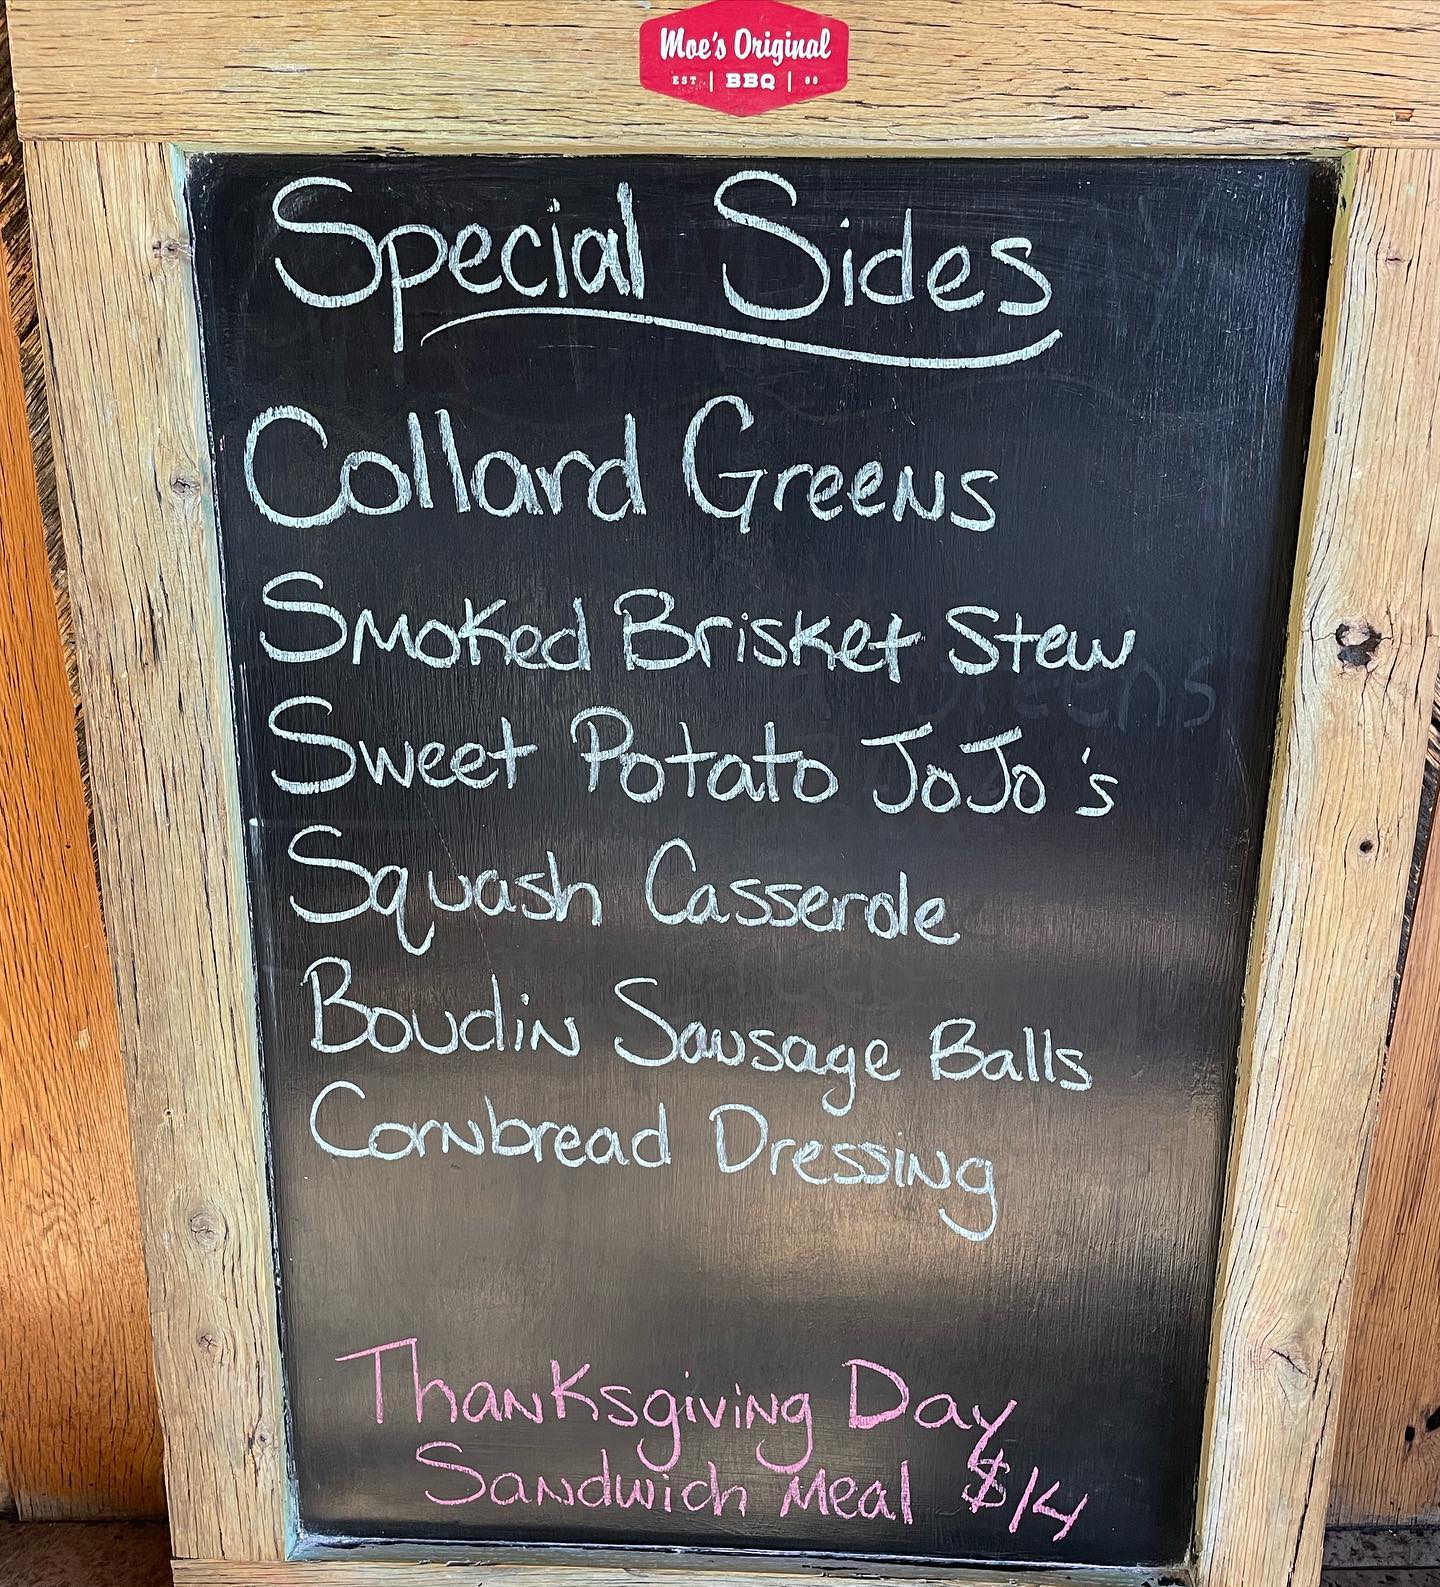 Moe's Original
EST | BBQ | 88
Special Sides
Collard Greens
Smoked Brisket Stew
Sweet Potato JoJo's
Squash Casserole
Boudin Sausage Balls
Cornbread Dressing
Thanksgiving Day
Sandwich Meal $14